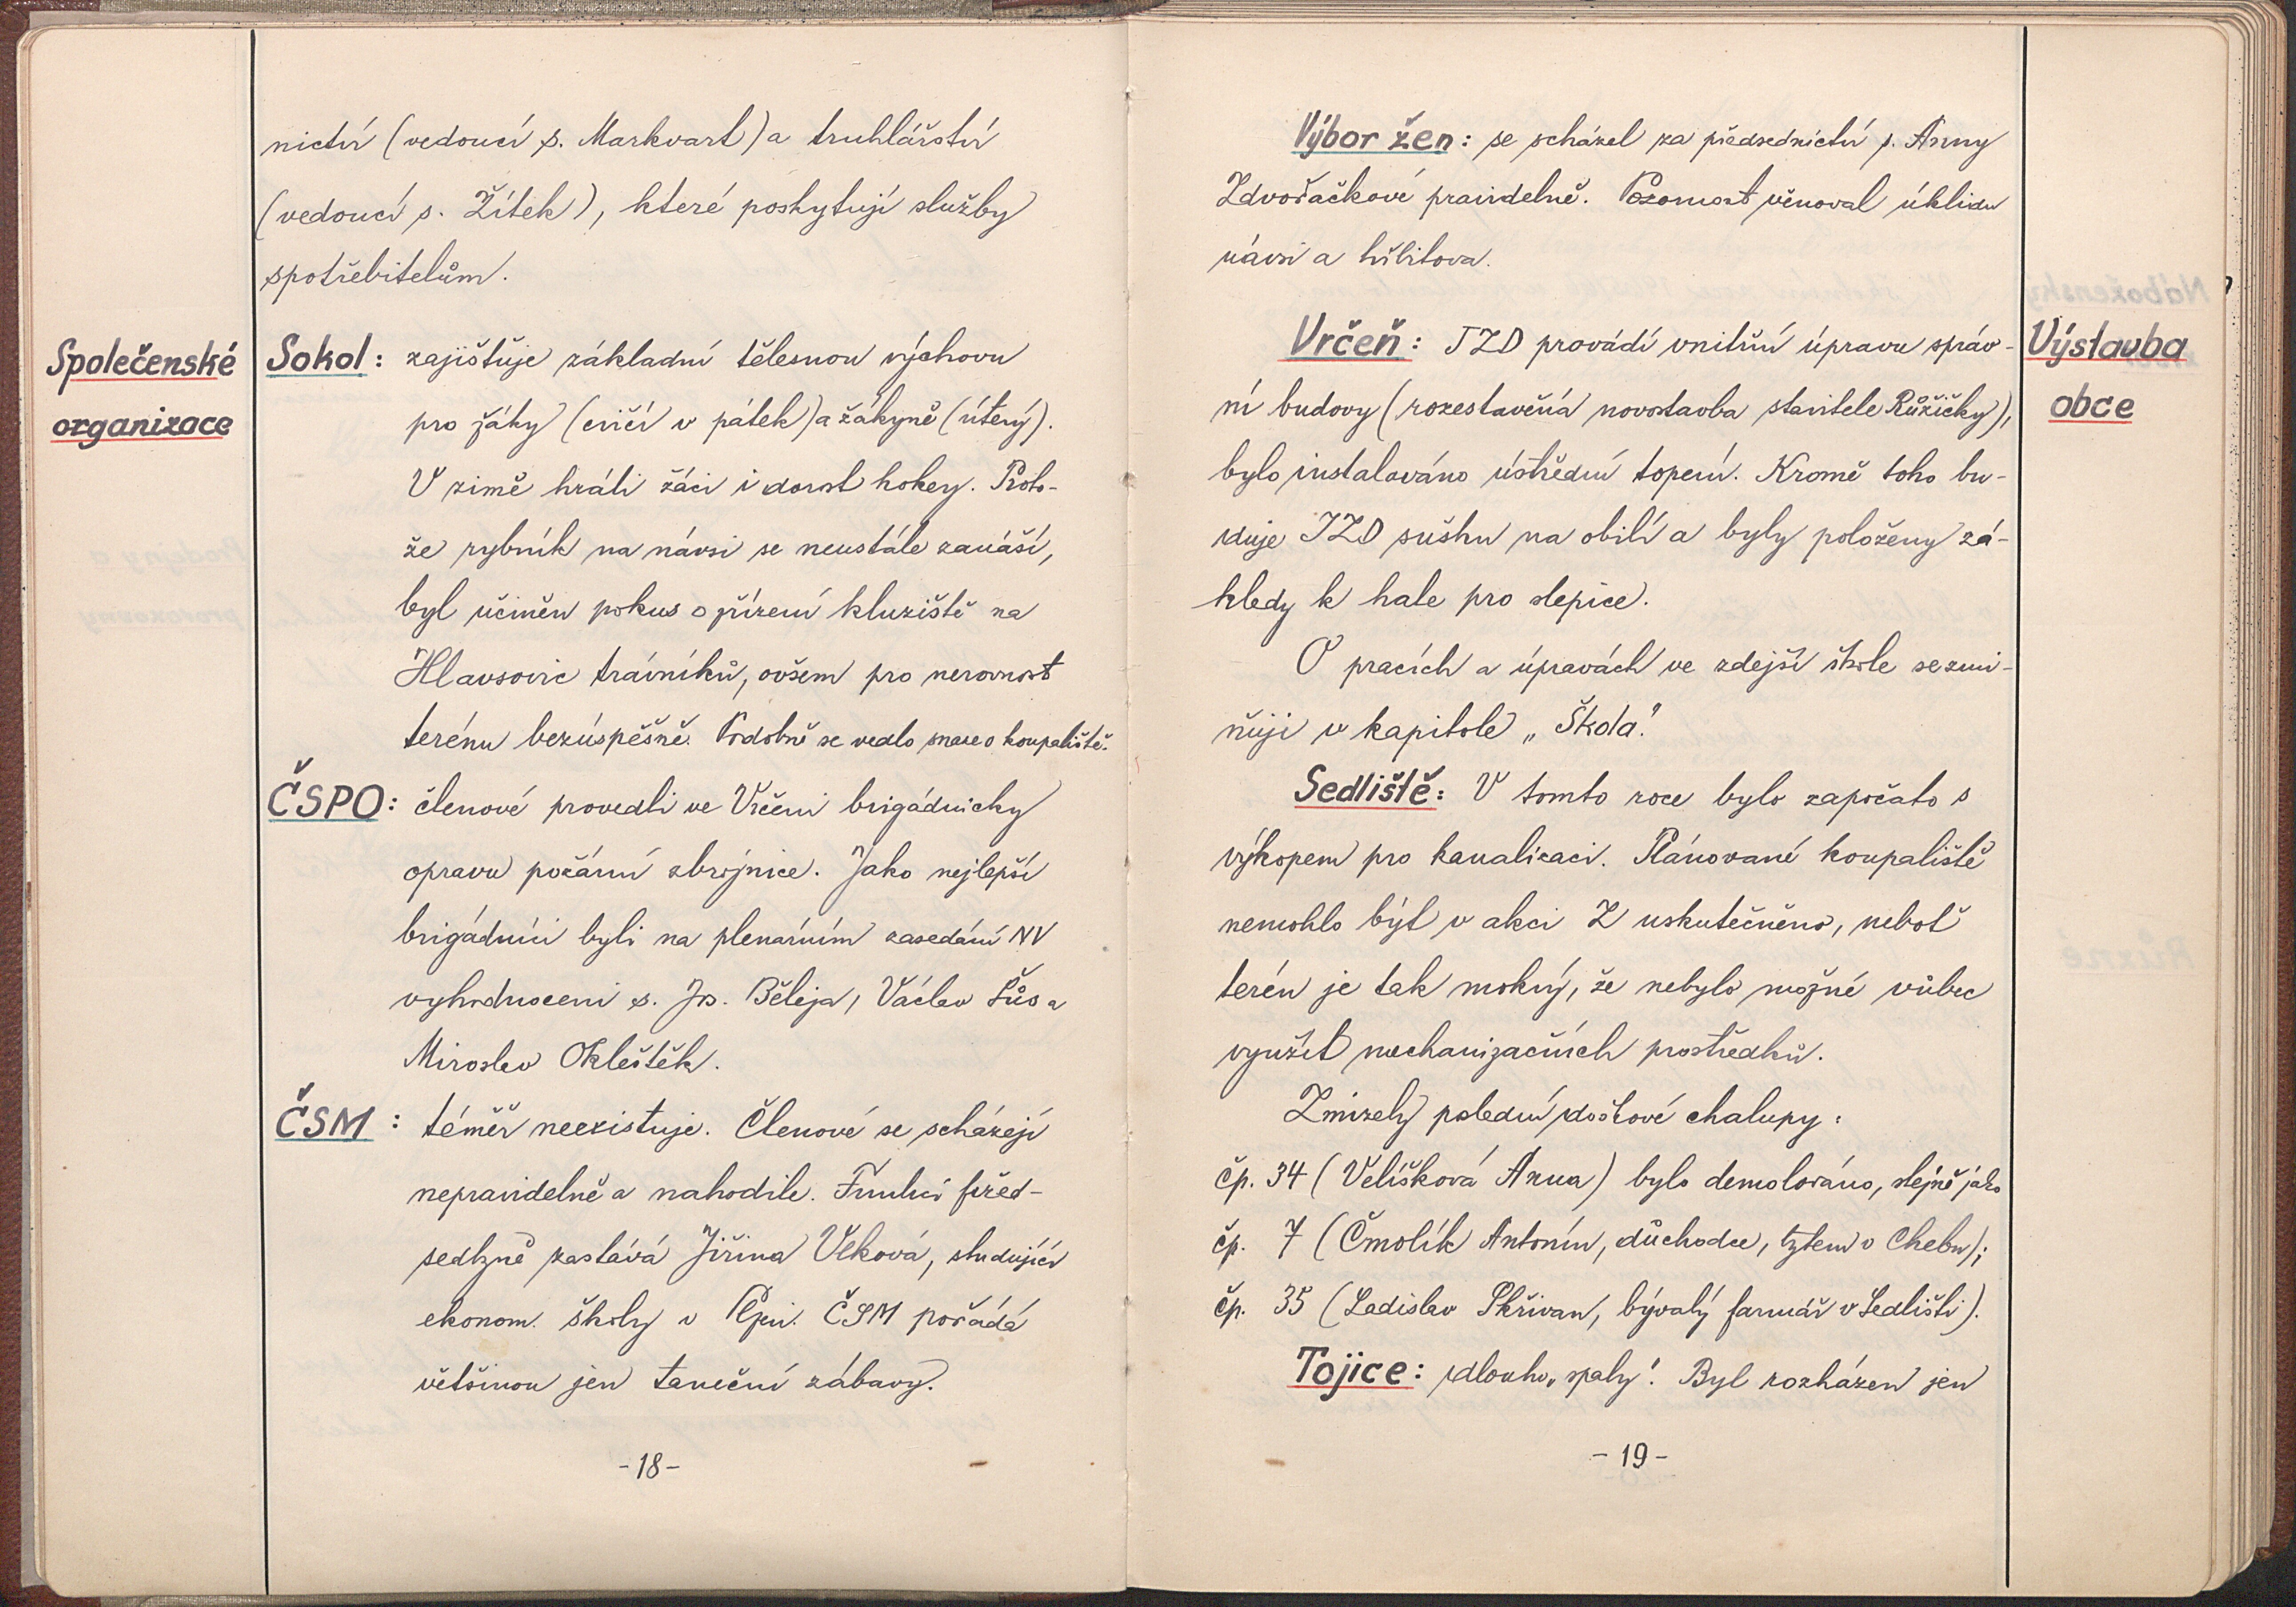 nictví (vedoucí s. Markvart) a truhlářství
(vedoucí s. Žítek), které poskytují služby
spotřebitelům.
Společenské
organizace
Sokol: zajišťuje základní tělesnou výchovu
pro žáky (cvičí v pátek) a žákyně (úterý).
V zimě hráli žáci i dorost hokey. Proto-
že rybník na návsi se neustále zanáší,
byl učiněn pokus o zřízení kluziště na
Hlavsovic trávníků, ovšem pro nerovnost
terénu bezúspěšně. Podobně se vedlo snaze o koupaliště.
ČSPO: členové provedli ve Vrčeni brigádnicky
opravu požární zbrojnice. Jako nejlepší
brigádníci byli na plenárním zasedání NV
vyhodnoceni s. Jos. Běleja, Václav Fůs a
Miroslav Okleštěk.
ČSM: téměř neexistuje. Členové se scházejí
nepravidelně a nahodile. Funkci před-
sedkyně zastává Jiřina Vlková, studující
ekonom. školy v Plzni. ČSM pořádá
většinou jen taneční zábavy.
-18-
Výbor žen: se scházel za předsednictví s. Anny
Zdvořačkové pravidelně. Pozornost věnoval úklidu
návsi a hřbitova.
Výstavba
obce
Vrčeň: JZD provádí vnitřní úpravu správ-
ní budovy (rozestavěná novostavba stavitele Růžičky),
bylo instalováno ústřední topení. Kromě toho bu-
duje JZD sušku na obilí a byly položeny zá-
klady k hale pro slepice.
O pracích a úpravách ve zdejší škole se zmi-
ňuji v kapitole „Škola".
Sedliště: V tomto roce bylo započato s
výkopem pro kanalizaci. Plánované koupaliště
nemohlo být v akci Z uskutečněno, neboť
terén je tak mokrý, že nebylo možné vůbec
využít mechanizačních prostředků.
Zmizely poslední doškové chalupy:
čp. 34 (Velíšková Anna) bylo demolováno, stejně jako
čp. 7 (Čmolík Antonín, důchodce, t. Cheb v Chebu);
čp. 35 (Ladislav Skřivan, bývalý farmář v Sedlišti).
Tojice: dlouho „spaly". Byl rozházen jen
-19-